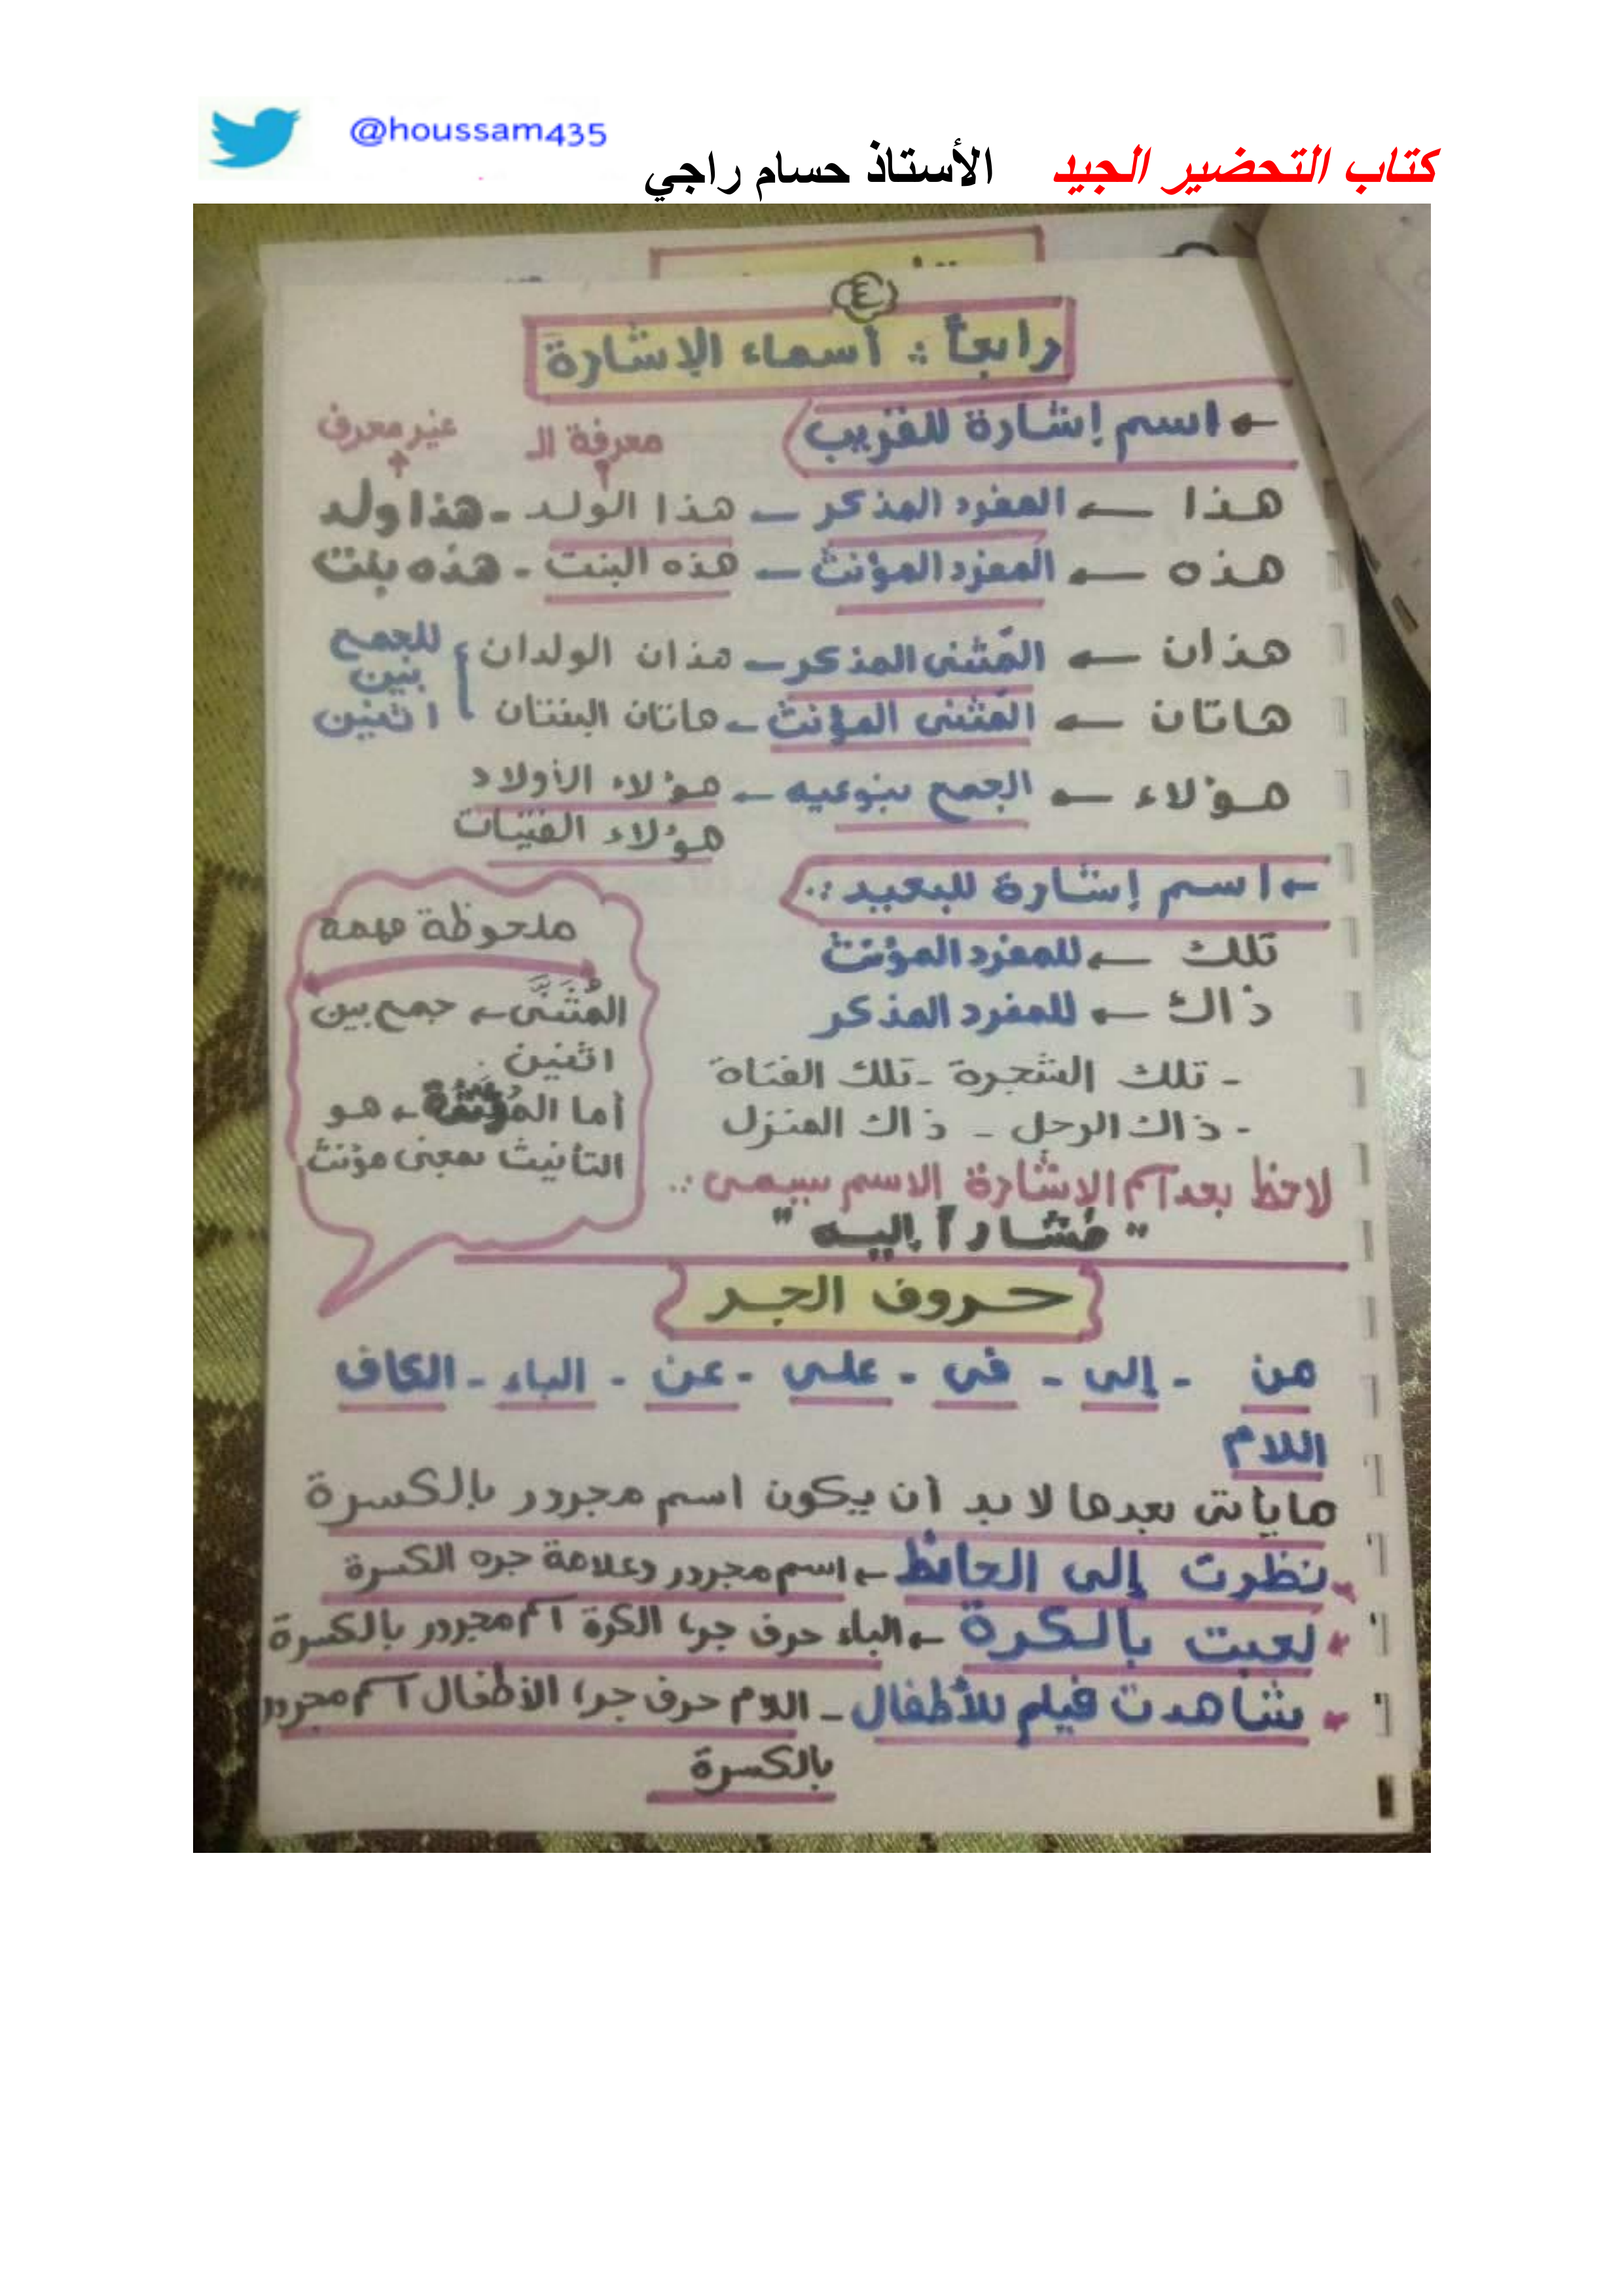 @houssam435
كتاب التحضير الجيد الأستاذ حسام راجي
٤
رابعاً : أسماء الإشارة
← اسم إشارة للقريب
معرفة ال
غير معرف
هذا ← المفرد المذكر ← هذا الولد - هذا ولد
هذه ← المفرد المؤنث ← هذه البنت - هذه بنت
هذان ← المثنى المذكر ← هذان الولدان
هاتان ← المثنى المؤنث ← هاتان البنتان
للجمع
بين
اثنين
هؤلاء ← الجمع بنوعيه ← هؤلاء الأولاد
هؤلاء الفتيات
← اسم إشارة للبعيد :.
تلك ← للمفرد المؤنث
ذاك ← للمفرد المذكر
- تلك الشجرة - تلك الفتاة
- ذاك الرجل - ذاك المنزل
لاحظ بعد اسم الإشارة الاسم سيسمى :.
" مُشاراً إليه "
ملحوظة مهمة
المُثَنَّى ← جمع بين
اثنين .
أما ← هو
التأنيث بمعنى مؤنث
حروف الجر
من - إلى - في - على - عن - الباء - الكاف
اللام
ما يأتي بعدها لا بد أن يكون اسم مجرور بالكسرة
نظرت إلى الحائط ← اسم مجرور وعلامة جره الكسرة
* لعبت بالكرة ← الباء حرف جر، الكرة اسم مجرور بالكسرة
* شاهدت فيلم للأطفال - اللام حرف جر، الأطفال اسم مجرور
بالكسرة